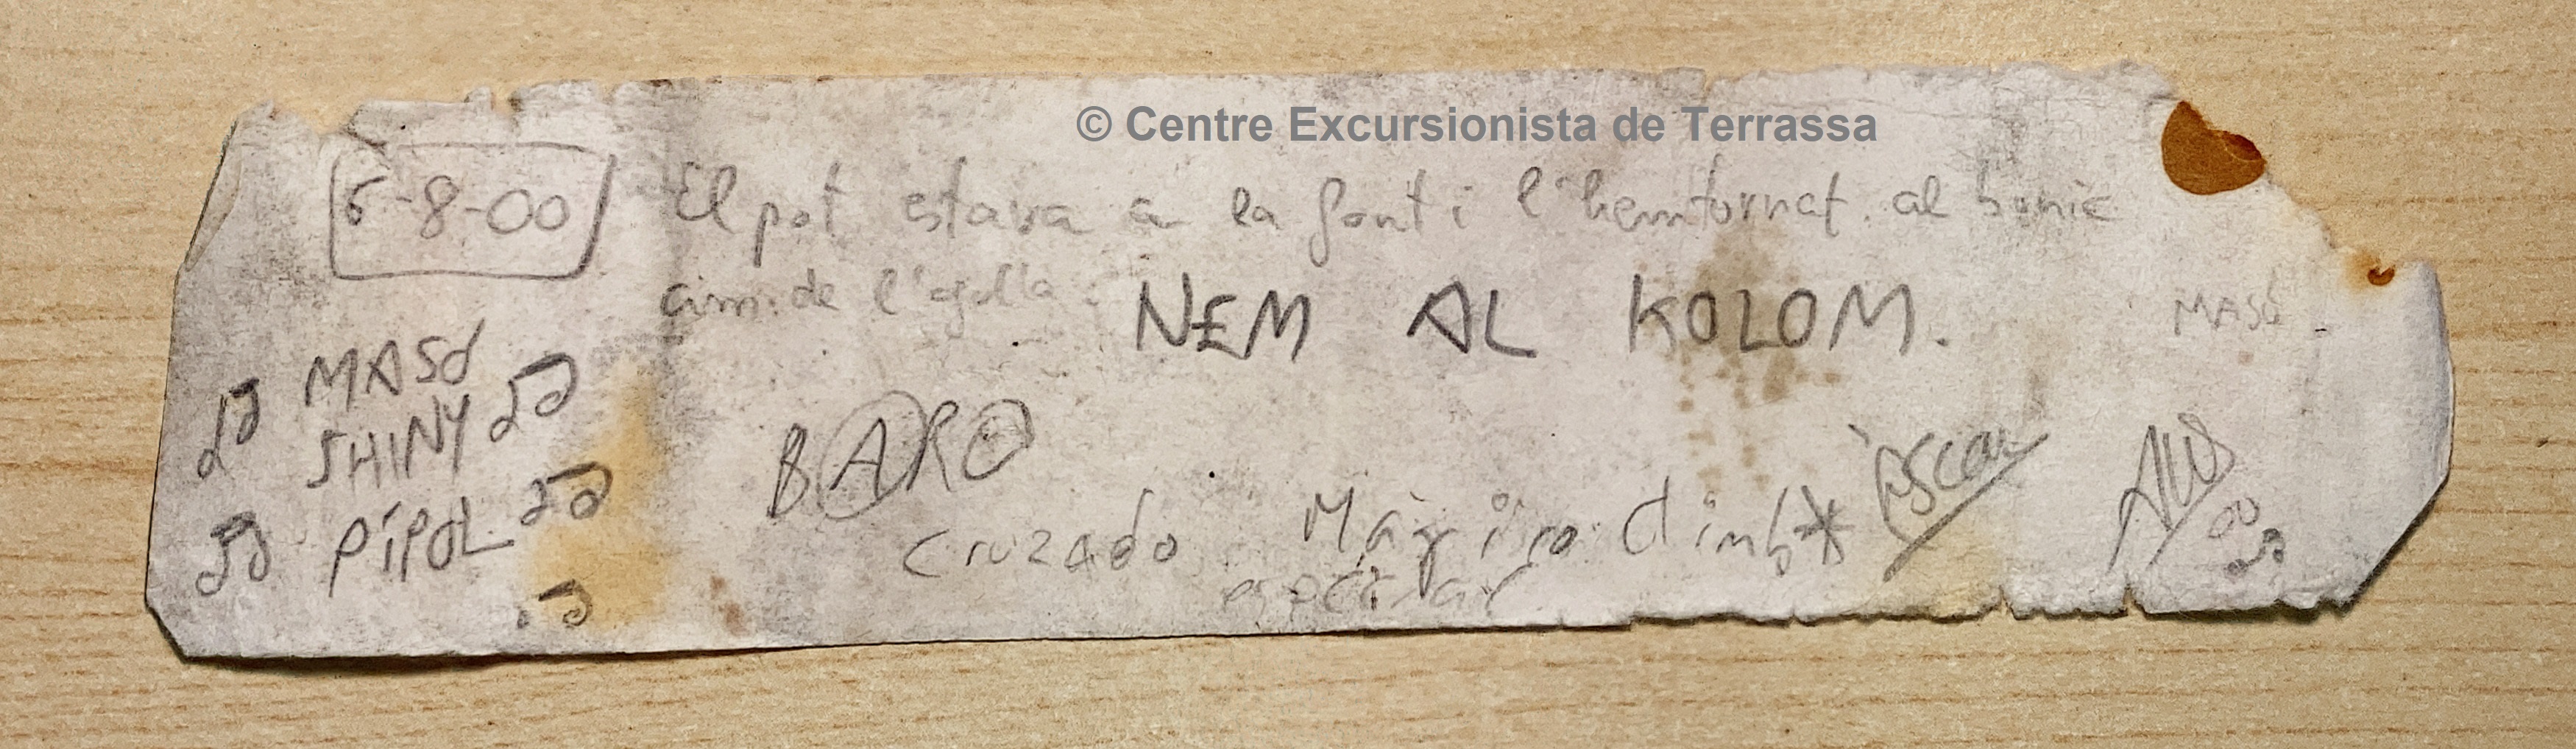 © Centre Excursionista de Terrassa
6-8-00
El pot estava a la font i l'hem tornat al bonic
cim de l'agulla.
NEM AL KOLOM.
MASÓ
MASÓ
SHINY
PÍPOL
BARO
cruzado Màgico climb
Òscar